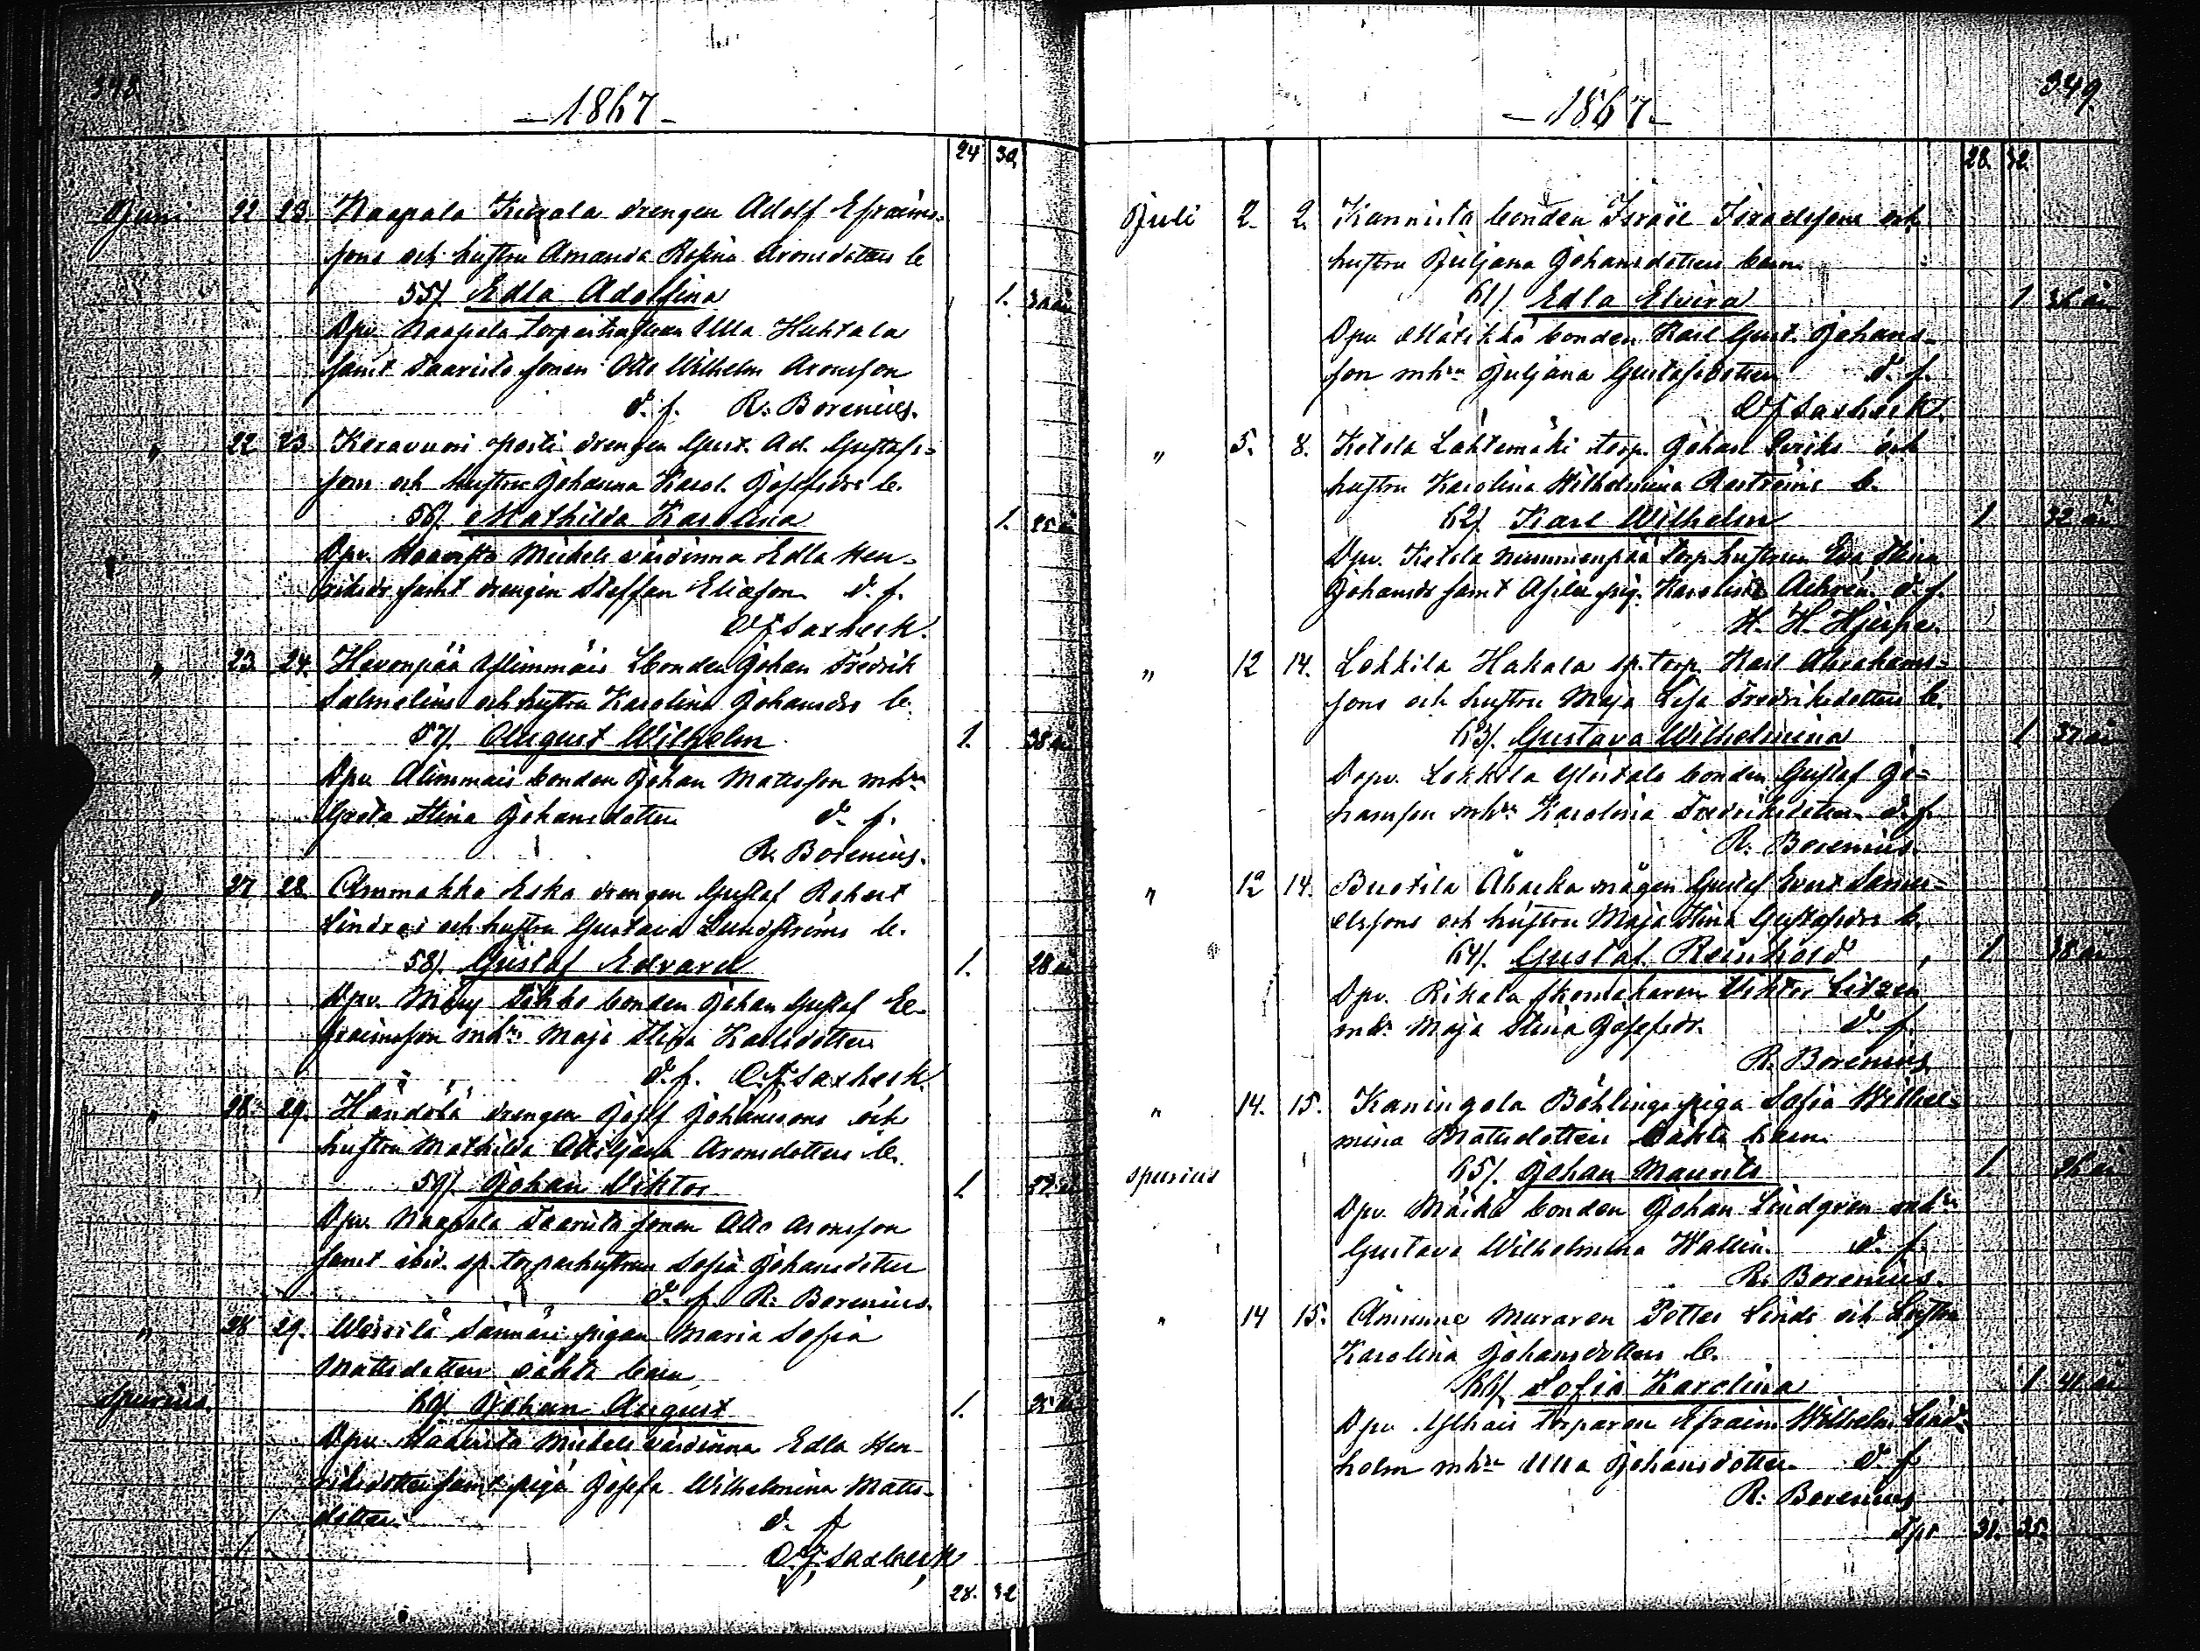 348
– 1867 –
24 30.
Juni 22 23. Naapala Keixala drengen Adolf Efraims-
sons och hustru Amanda Rosina Aronsdotters b
55/. Edla Adolfina 1. 30 år
Dpv. Naapala torparhustrun Ulla Huhtala
samt Taaristo sonen Otto Wilhelm Aronsson
d. f. R: Borenius.
" 22 23 Keravuori drengen Gust. Ad. Gustafs-
sons och hustru Johanna Karol. Josefsdrs b.
56/. Mathilda Karolina 1. 25 år
Dpv. Haavisto Mickels värdinna Edla Hen-
riksdr samt drengen Steffan Eliasson d. f.
O J Saxbeck.
" 23. 24. Hevonpää Alimmäis bonden Johan Fredrik
Salmelins och hustru Karolina Johansdrs b.
57/. August Wilhelm 1. 38 år
Dpv Alimmais bonden Johan Mattsson mhru
Greta Stina Johansdotter d. f.
R. Borenius.
" 27 28. Ammakko Eska drengen Gustaf Robert
och hustru Gustava Lundströms b.
58/. Gustaf Edvard 1. 28 år
Dpv. bonden Johan Gustaf Ef-
fraimsson mhru Maja Stina Karlsdotter
d. f. O. J. Saxbeck.
" 28. 29. Händölä drengen Josef Johanssons och
hustru Mathilda Aronsdotters b.
59/. Johan Viktor 1. 29 år
Dpv. Naapala Taaristo sonen Otto Aronsson
samt ibid. sp. torparhustrun Sofia Johansdotter
d. f. R: Borenius.
" 28 29. pigan Maria Sofia
Mattsdotters oäkta barn
spurius. 60/. Johan August 1. 25 år
Dpv. Haavisto Mickels värdinna Edla Hen-
riksdotter samt piga Josefa Wilhelmina Matts-
dotter. d. f
O. J. Saxbeck
28. 32
349.
– 1867 –
28. 32.
Juli 2. 2. Kannisto bonden Israel Israelssons och
hustru Juljana Johansdotters barn
61/. Edla Elvira 1 36 år
Dpv. bonden Karl Gust. Johans-
son mhru Juljana Gustafsdotter d. f.
O J Saxbeck.
" 5. 8. Ketola Lähtemäki torp. Johan Eriks och
hustru Karolina Wilhelmina b.
62/. Karl Wilhelm 1 32 år
Dpv. Ketola Nummenpää torp. hustrun Eva Stina
Johansdr samt pig. Karolina d. f.
H. H. Hjerpe.
" 12 14. Lokkila Hakala sp. torp. Karl Abrahams-
sons och hustru Maja Lisa Fredriksdotters b.
63/. Gustava Wilhelmina 1 37 år
Dopv. Lokkila bonden Gustaf Jo-
hansson mhru Karolina Fredriksdotter d. f.
R: Borenius.
" 12 14. mågen Gustaf Evert Samu-
elssons och hustru Maja Stina Gustafsdrs b.
64/. Gustaf Reinhold 1. 38 år
Dpv. Rikala skomakaren Viktor
mhr Maja Stina Josefsdr. d. f.
R. Borenius
" 14. 15. Kaningola Böhlings piga Sofia Wilhel-
mina Mattsdotters oäkta barn
spurius 65/. Johan Maurits 1. 26 år
Dpv. bonden Johan Lindgren mhru
Gustava Wilhelmina Wallin. d. f.
R. Borenius.
" 14 15. muraren Petter Linds och hustru
Karolina Johansdotters b.
66/. Sofia Karolina 1 41 år
Dpv. Ylhäis torparen Efraim Wilhelm Lind-
holm mhru Ulla Johansdotter d. f.
R: Borenius
Tpt 31. 35.